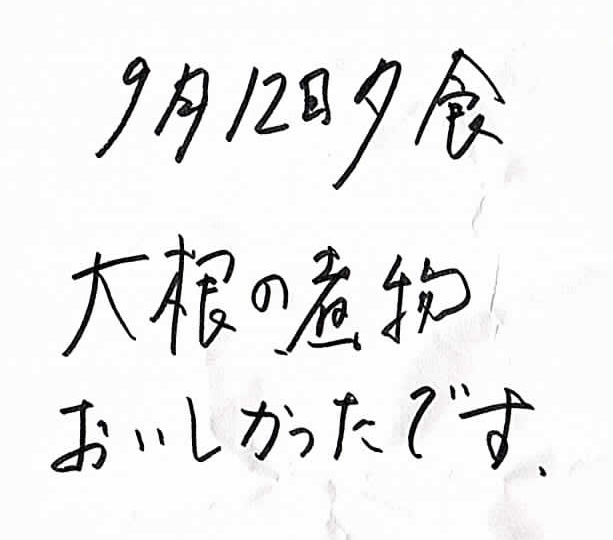 9月12日夕食
大根の煮物
おいしかったです、